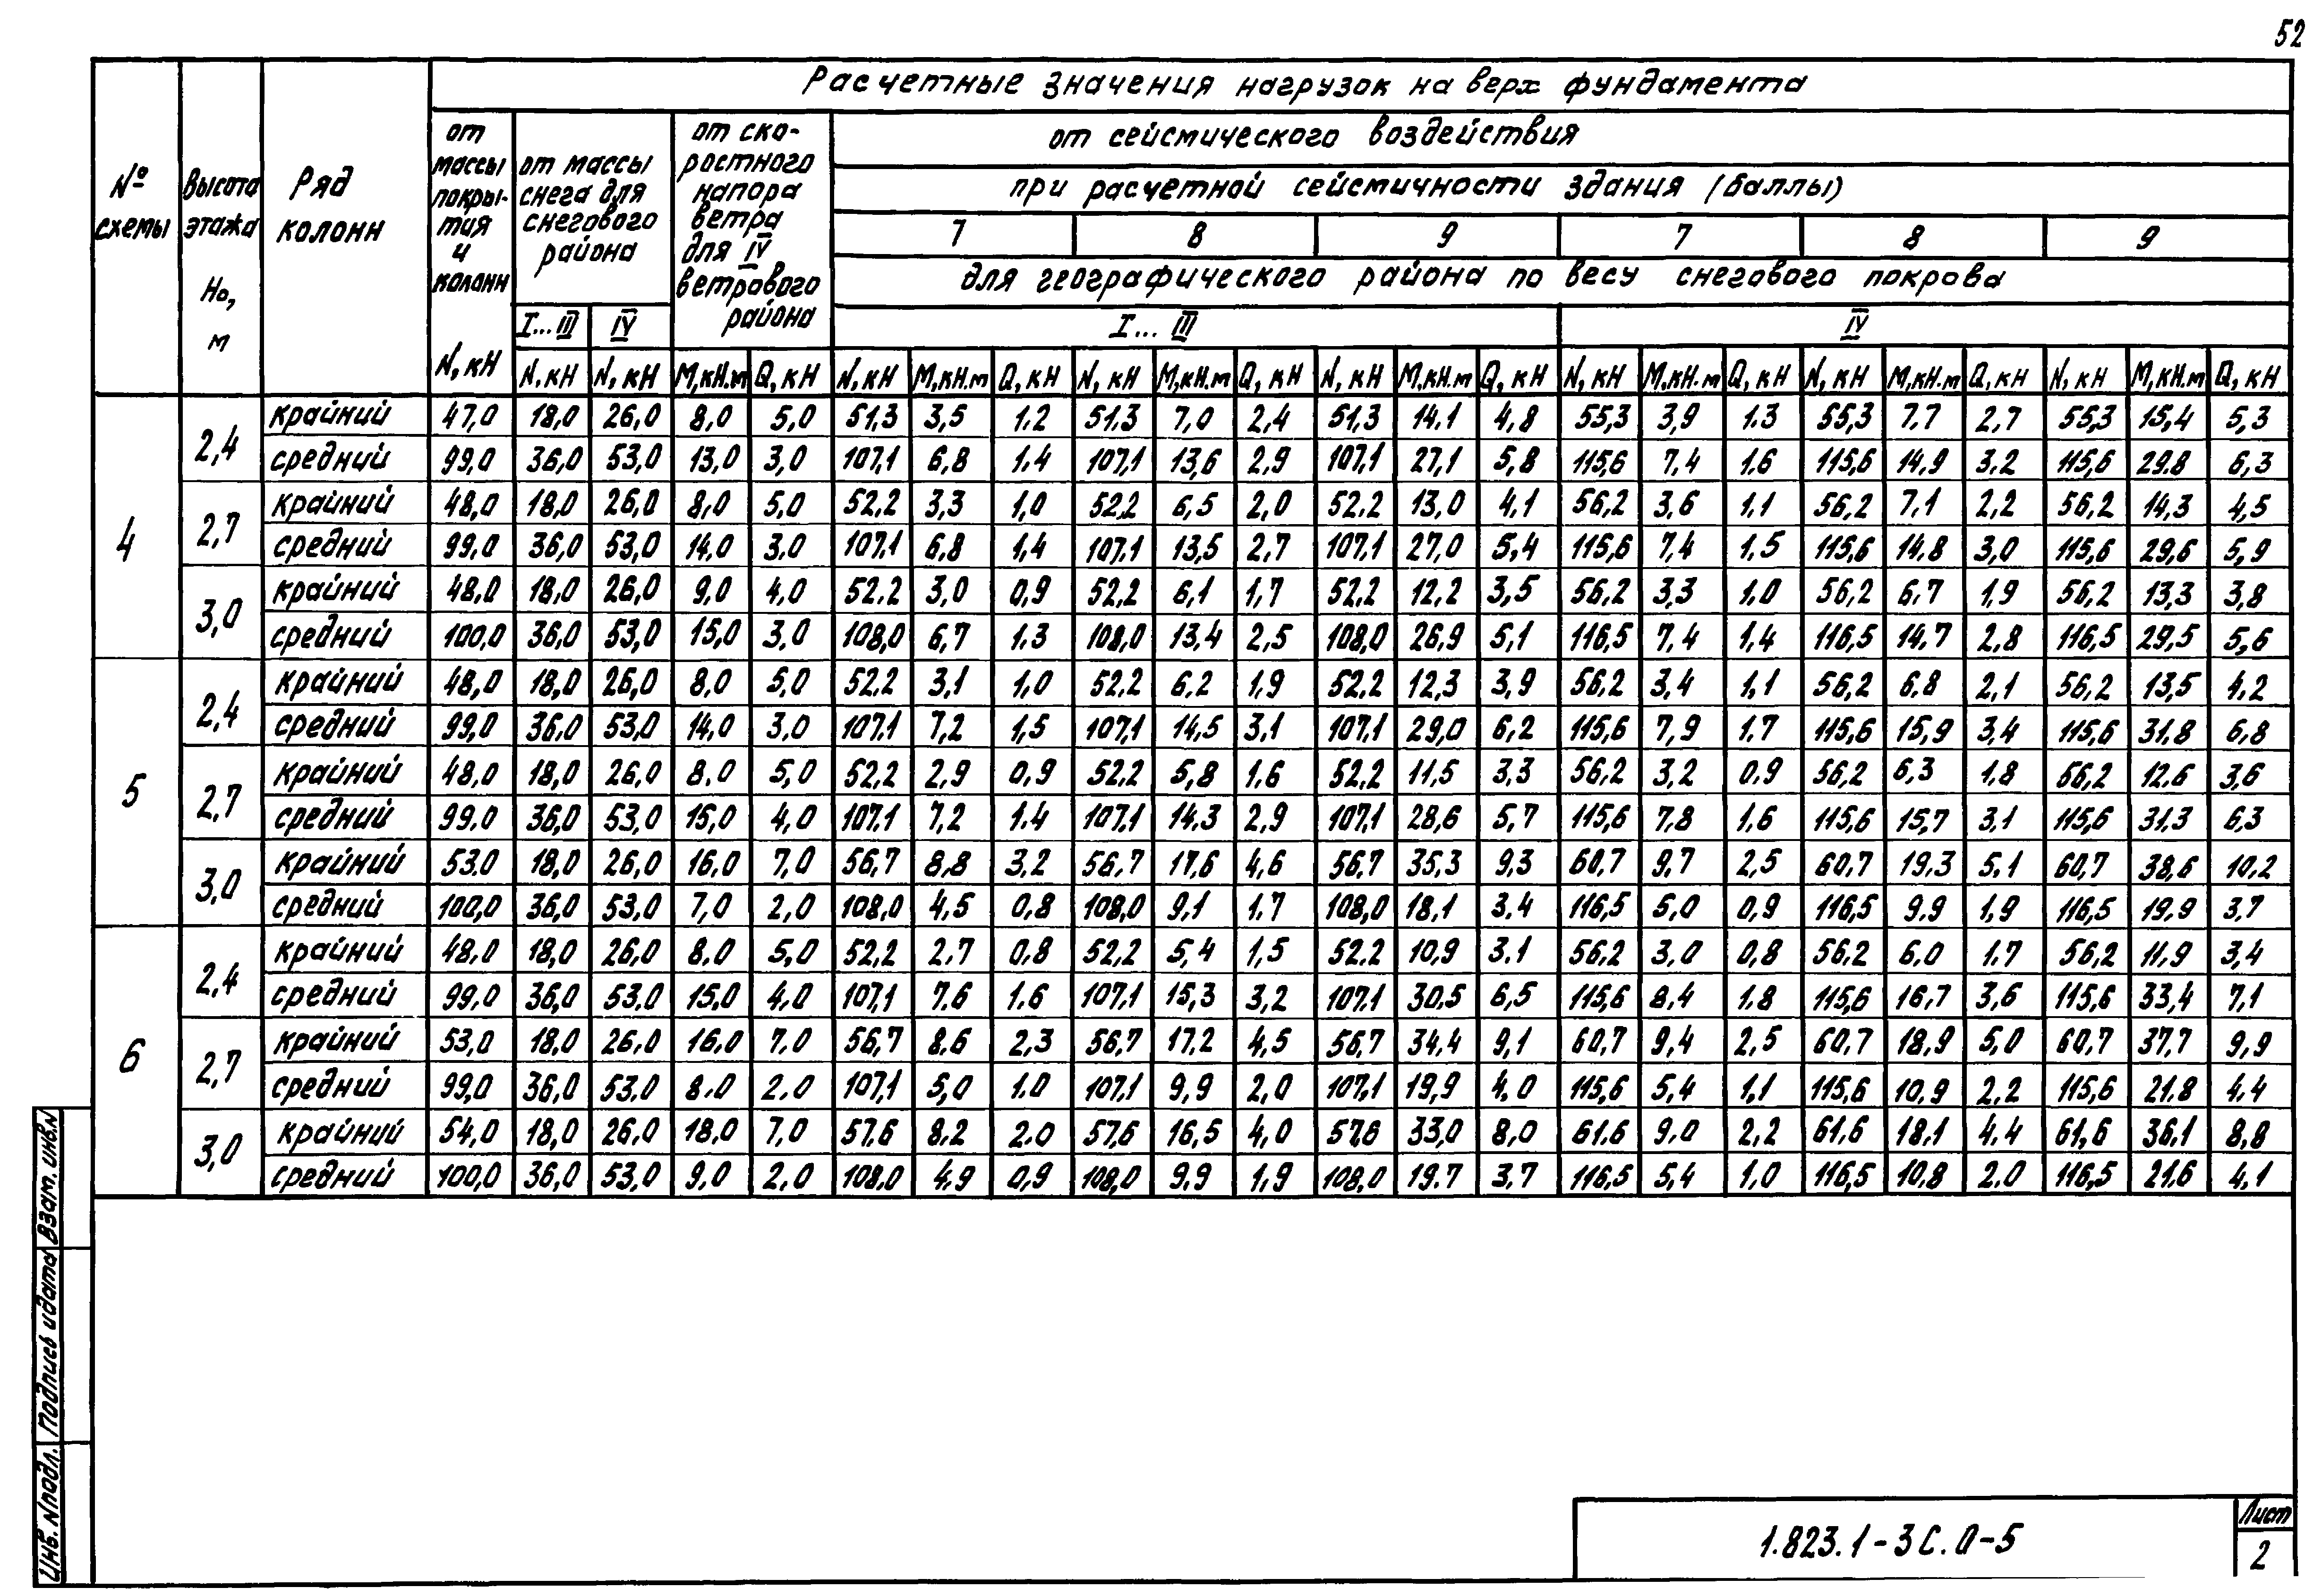 52
Расчетные значения нагрузок на верх фундамента
№ схемы
Высота этажа Но, м
Ряд колонн
от массы покры-тия и колонн
от массы снега для снегового района
от ско-ростного напора ветра для IV ветрового района
от сейсмического воздействия
при расчетной сейсмичности здания (баллы)
7 8 9 7 8 9
для географического района по весу снегового покрова
I... III IV I... III IV
N, кН N, кН N, кН М,кН.м Q, кН N, кН М,кН.м Q, кН N, кН М,кН.м Q, кН N, кН М,кН.м Q, кН N, кН М,кН.м Q, кН N, кН М,кН.м Q, кН N, кН М,кН.м Q, кН
4
2,4 крайний 47,0 18,0 26,0 8,0 5,0 51,3 3,5 1,2 51,3 7,0 2,4 51,3 14,1 4,8 55,3 3,9 1,3 55,3 7,7 2,7 55,3 15,4 5,3
средний 99,0 36,0 53,0 13,0 3,0 107,1 6,8 1,4 107,1 13,6 2,9 107,1 27,1 5,8 115,6 7,4 1,6 115,6 14,9 3,2 115,6 29,8 6,3
2,7 крайний 48,0 18,0 26,0 8,0 5,0 52,2 3,3 1,0 52,2 6,5 2,0 52,2 13,0 4,1 56,2 3,6 1,1 56,2 7,1 2,2 56,2 14,3 4,5
средний 99,0 36,0 53,0 14,0 3,0 107,1 6,8 1,4 107,1 13,5 2,7 107,1 27,0 5,4 115,6 7,4 1,5 115,6 14,8 3,0 115,6 29,6 5,9
3,0 крайний 48,0 18,0 26,0 9,0 4,0 52,2 3,0 0,9 52,2 6,1 1,7 52,2 12,2 3,5 56,2 3,3 1,0 56,2 6,7 1,9 56,2 13,3 3,8
средний 100,0 36,0 53,0 15,0 3,0 108,0 6,7 1,3 108,0 13,4 2,5 108,0 26,9 5,1 116,5 7,4 1,4 116,5 14,7 2,8 116,5 29,5 5,6
5
2,4 крайний 48,0 18,0 26,0 8,0 5,0 52,2 3,1 1,0 52,2 6,2 1,9 52,2 12,3 3,9 56,2 3,4 1,1 56,2 6,8 2,1 56,2 13,5 4,2
средний 99,0 36,0 53,0 14,0 3,0 107,1 7,2 1,5 107,1 14,5 3,1 107,1 29,0 6,2 115,6 7,9 1,7 115,6 15,9 3,4 115,6 31,8 6,8
2,7 крайний 48,0 18,0 26,0 8,0 5,0 52,2 2,9 0,9 52,2 5,8 1,6 52,2 11,5 3,3 56,2 3,2 0,9 56,2 6,3 1,8 56,2 12,6 3,6
средний 99,0 36,0 53,0 15,0 4,0 107,1 7,2 1,4 107,1 14,3 2,9 107,1 28,6 5,7 115,6 7,8 1,6 115,6 15,7 3,1 115,6 31,3 6,3
3,0 крайний 53,0 18,0 26,0 16,0 7,0 56,7 8,8 3,2 56,7 17,6 4,6 56,7 35,3 9,3 60,7 9,7 2,5 60,7 19,3 5,1 60,7 38,6 10,2
средний 100,0 36,0 53,0 7,0 2,0 108,0 4,5 0,8 108,0 9,1 1,7 108,0 18,1 3,4 116,5 5,0 0,9 116,5 9,9 1,9 116,5 19,9 3,7
6
2,4 крайний 48,0 18,0 26,0 8,0 5,0 52,2 2,7 0,8 52,2 5,4 1,5 52,2 10,9 3,1 56,2 3,0 0,8 56,2 6,0 1,7 56,2 11,9 3,4
средний 99,0 36,0 53,0 15,0 4,0 107,1 7,6 1,6 107,1 15,3 3,2 107,1 30,5 6,5 115,6 8,4 1,8 115,6 16,7 3,6 115,6 33,4 7,1
2,7 крайний 53,0 18,0 26,0 16,0 7,0 56,7 8,6 2,3 56,7 17,2 4,5 56,7 34,4 9,1 60,7 9,4 2,5 60,7 18,9 5,0 60,7 37,7 9,9
средний 99,0 36,0 53,0 8,0 2,0 107,1 5,0 1,0 107,1 9,9 2,0 107,1 19,9 4,0 115,6 5,4 1,1 115,6 10,9 2,2 115,6 21,8 4,4
3,0 крайний 54,0 18,0 26,0 18,0 7,0 57,6 8,2 2,0 57,6 16,5 4,0 57,6 33,0 8,0 61,6 9,0 2,2 61,6 18,1 4,4 61,6 36,1 8,8
средний 100,0 36,0 53,0 9,0 2,0 108,0 4,9 0,9 108,0 9,9 1,9 108,0 19,7 3,7 116,5 5,4 1,0 116,5 10,8 2,0 116,5 21,6 4,1
Инв. N подл. Подпись и дата Взам. инв. N
1.823.1-3С.0-5
Лист
2